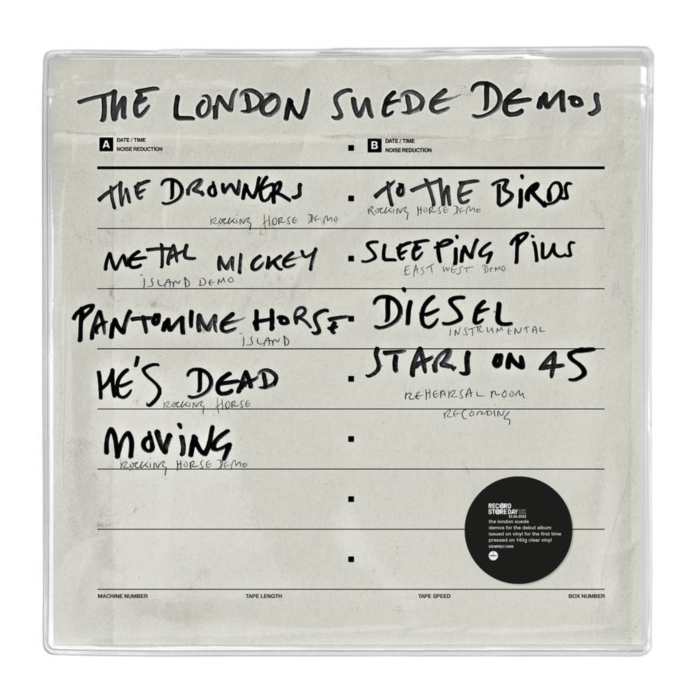 THE LONDON SUEDE DEMOS
A DATE / TIME
NOISE REDUCTION
B DATE / TIME
NOISE REDUCTION
THE DROWNERS
ROCKING HORSE DEMO
METAL MICKEY
ISLAND DEMO
PANTOMIME HORSE
ISLAND
HE'S DEAD
ROCKING HORSE
MOVING
ROCKING HORSE DEMO
TO THE BIRDS
ROCKING HORSE DEMO
SLEEPING PILLS
EAST WEST DEMO
DIESEL
INSTRUMENTAL
STARS ON 45
REHEARSAL ROOM
RECORDING
RECORD
STORE DAY
the london suede
demos for the debut album
issued on vinyl for the first time
pressed on 140g clear vinyl
MACHINE NUMBER
TAPE LENGTH
TAPE SPEED
BOX NUMBER